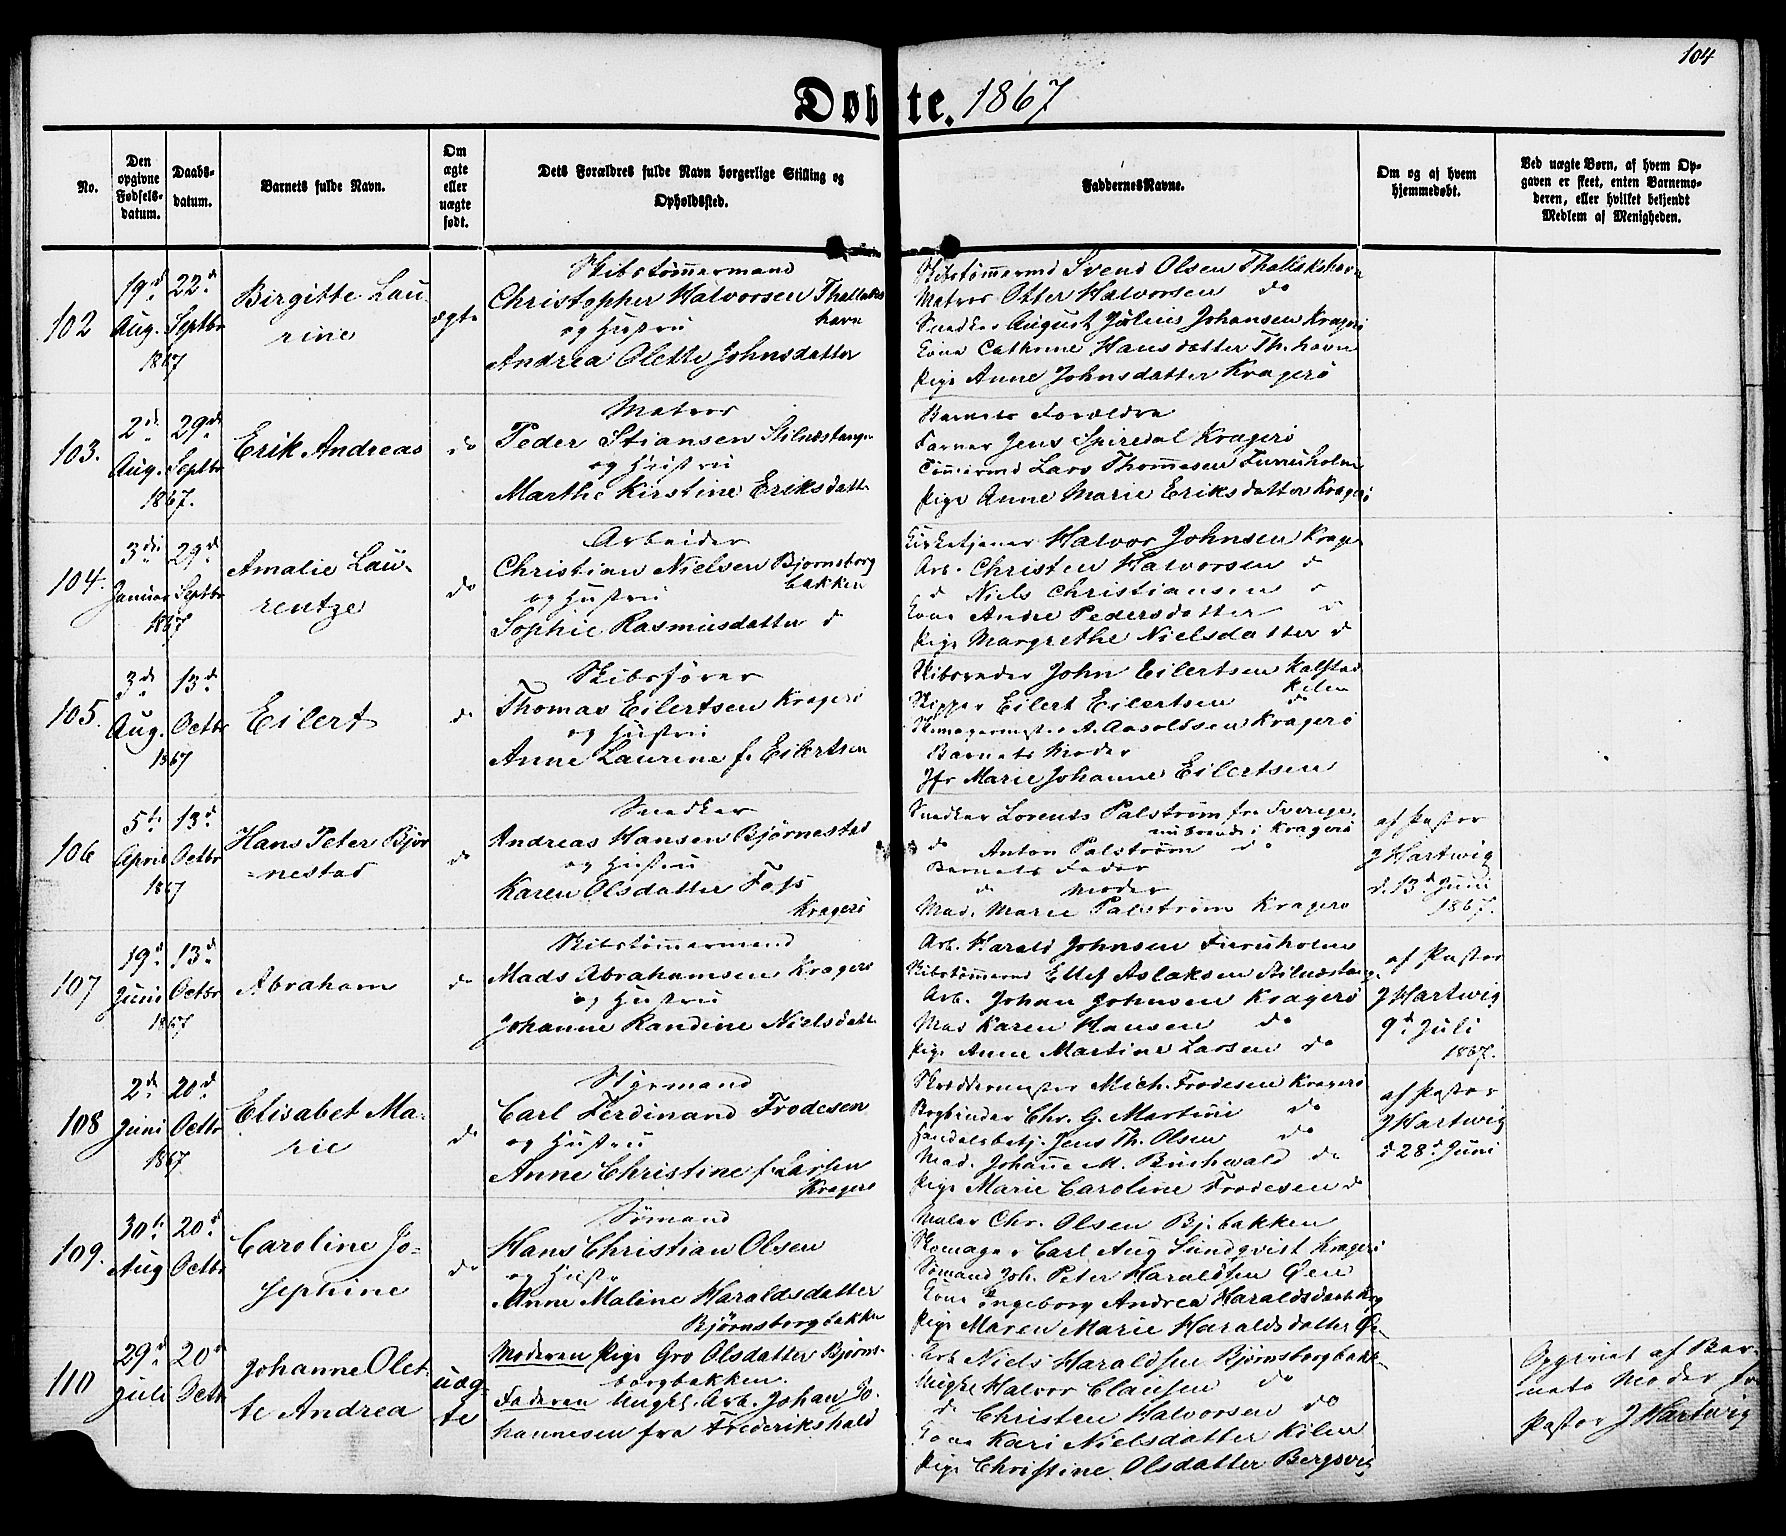 104
Døbte. 1867
No.
Den opgivne Fødsels-datum.
Daabs-datum.
Barnets fulde Navn.
Om ægte eller uægte født.
Dets Forældres fulde Navn borgerlige Stilling og Opholdssted.
FaddernesNavne.
Om og af hvem hjemmedøbt.
Ved uægte Børn, af hvem Op-gaven er skeet, enten Barnemo-deren, eller hvilket betjendt Medlem af Menigheden.
102
19d Aug. 1867
22d Septbr
Birgitte Lau-
rine
ægte
Skibstømmermand
Christopher Halvorsen Thallaks
havn
og Hustru
Andrea Olette Johnsdatter
Skibstømmermd Svend Olsen Thallakshavn
Matros Otter Halvorsen do
Snedker August Julius Johansen Kragerö
Kone Cathrine Hansdatter Th.havn
Pige Anne Johnsdatter Kragerö
103.
2d Aug. 1867.
29d Septbr
Erik Andreas
do
Matros
Peder Stiansen Stilnæstangen
og Hustru
Marthe Kirstine Eriksdatt
Barnets Forældre
Farver Jens Spiredal Kragerö
Tømmermd Lars Thomesen Furruholmen
Pige Anne Marie Eriksdatter Kragerö
104.
3die Januar 1867
29d Septbr
Amalie Lau-
rentze
do
Arbeider
Christian Nielsen Bjornsborg
bakken
og Hustru
Sophie Rasmusdatter d
Kirketjener Halvor Johnsen Krage
Arb. Christen Halvorsen d
d Niels Christiansen
Kone Andre Pedersdatter
Pige Margrethe Nielsdatter d
105.
3d Aug. 1867
13d Octbr
Eilert
do
Skibsfører
Thomas Eilertsen Kragerö
og Hustru
Anne Laurine f. Eilertsen
Skibsreder John Eilertsen Kalstad
Kilen
Skipper Eilert Eilertsen do
Skomagermester A. Aaroldsen Kragerö
Barnets Moder
Jfr Marie Johanne Eilertsen
106
5te April 1867
13d Octbr
Hans Peter Bjør
-nestad
do
Snedker
Andreas Hansen Bjørnestad
og Hustru
Karen Olsdatter Foss
Kragerö
Snedker Lorents Palstrøm fra Sverige,
nu boende i Kragerö
do Anton Palstrøm do
Barnets Fader
d Moder
Mad. Marie Palstrøm Kragerø
af Pastor
J Hartwig
d. 13d Juni
1867.
107
19d Juni 1867
13d Octbr
Abraham
do
Skibstømmermand
Mads Abrahamsen Kragerö
og Hustru
Johanne Randine Nielsdatt
Arb. Harald Johnsen Furruholmen
Skibstømmermd Ellef Aslaksen Stilnæstang
Arb. Johan Johnsen Kragerö
Mad Karen Hansen do
Pige Anne Martine Larsen do
af Pastor
J Hartwig
9d Juli
1867.
108
2d Juni 1867
20d Octbr
Elisabet Ma-
rie
do
Styrmand
Carl Ferdinand Frodesen
og Hustru
Anne Christine f. Larsen
Kragerö
Skræddermester Mich. Frodesen Kragerö
Bogbinder Chr. G. Martini do
Handelsbetj. Jens Th. Olsen do
Mad. Johanne M. Buchwald do
Pige Marie Caroline Frodesen do
af Pastor
J Hartwig
d 28d Juni
109.
30te Aug
20d Octbr
Caroline Jo-
sephine
do
Sømand
Hans Christian Olsen
og Hustr
Anne Maline Haraldsdatter
Bjørnsborgbakken
Maler Chr. Olsen Bj.bakken
Skomager Carl Aug Sundqvist Kragerö
Sømand Joh. Peter Haraldsen Øen
Kone Ingeborg Andrea Haraldsdatt Krag
Pige Maren Marie Haraldsdatter Øe
110
29d Juli
20d Octb
Johanne Olet-
te Andrea
uæg-
te
Moderen Pige Gro Olsdatter Bjørns-
borgbakken.
Faderen Ungk. Arb. Johan Jo-
hannesen fra Frederikshald
Arb Niels Haraldsen Bjørnsborgbakk
Ungk Halvor Clausen do
d Christen Halvorsen do
Kone Kari Nielsdatter Kilen
Pige Christine Olsdatter Bergsvig
Opgivet af Bar-
nets Moder
Pastor J Hartwig